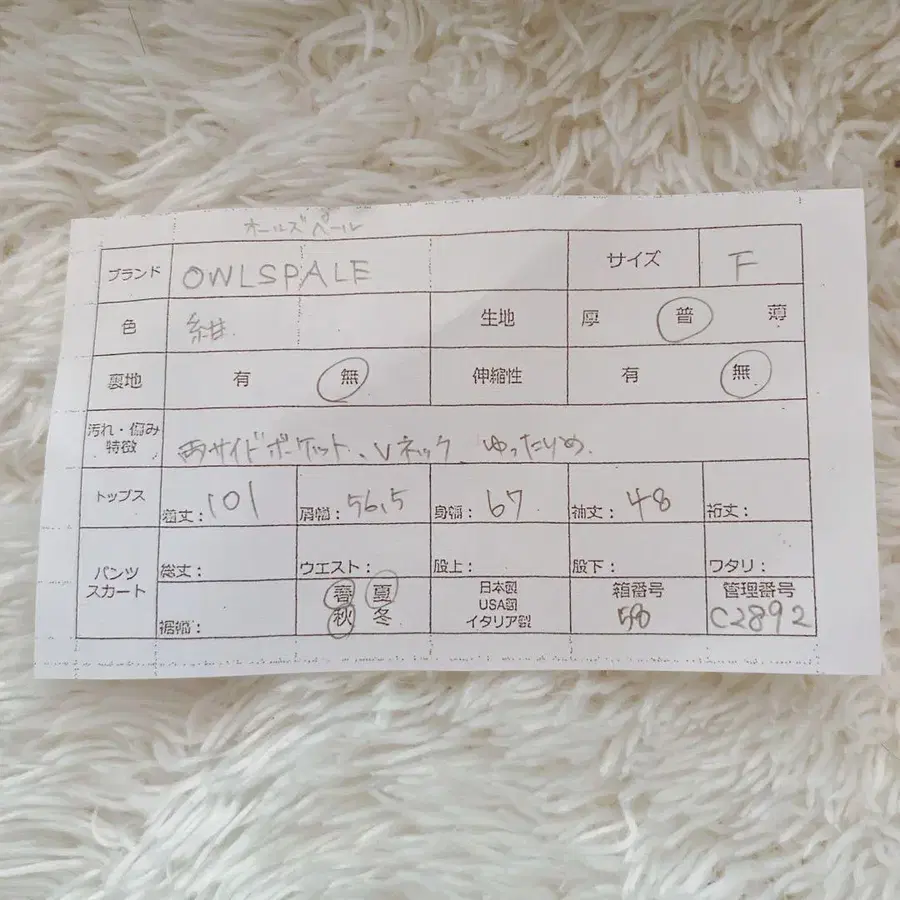 オールズペール
ブランド OWLSPALE サイズ F
色 紺 生地 厚 普 薄
裏地 有 無 伸縮性 有 無
汚れ・傷み
特徴 両サイドポケット、Vネック、ゆったりめ.
トップス 着丈:101 肩幅:56,5 身幅:67 袖丈:48 裄丈:
パンツ
スカート 総丈: ウエスト: 股上: 股下: ワタリ:
裾幅: 春 夏
秋 冬 日本製
USA製
イタリア製 箱番号
管理番号
C2892